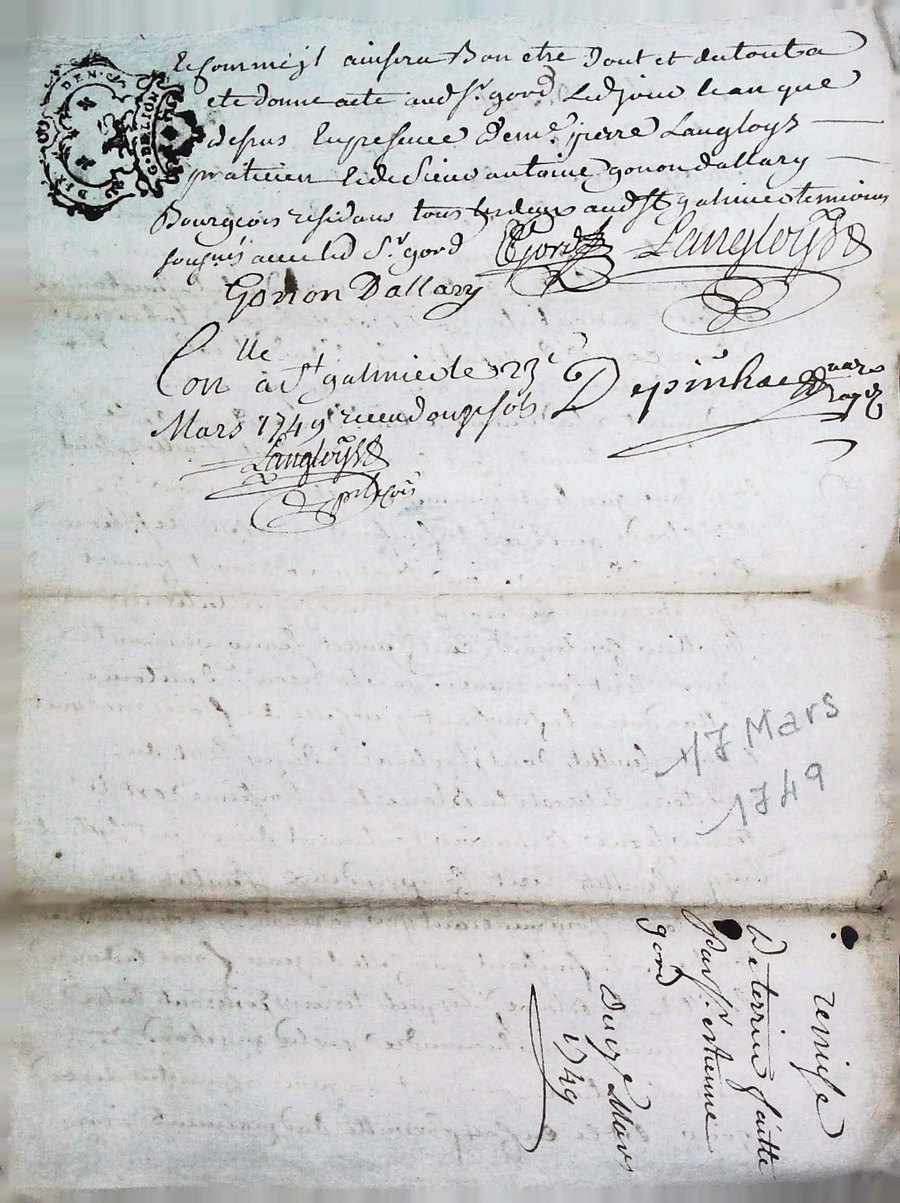 DIX DEN. G. DE LION
Et comme jl ainsera Bon etre Dont et du tout a
ete donne acte aud Sr. gord Led jour Lean que
depuis En presence de me. pierre Langloys
praticien et de Sieur antoine gonon dallary
Bourgeois residans tous Les deux aud St galmier temoins
sousnés avec led Sr. gord Gord Langloys
Gonon Dallary
Conlle a St galmier le 23e
Mars 1749 Depinhac
Langloys
17 Mars
1749
remise
De terrier faitte
Par Sr. estienne
gord
Du 17e Mars
1749